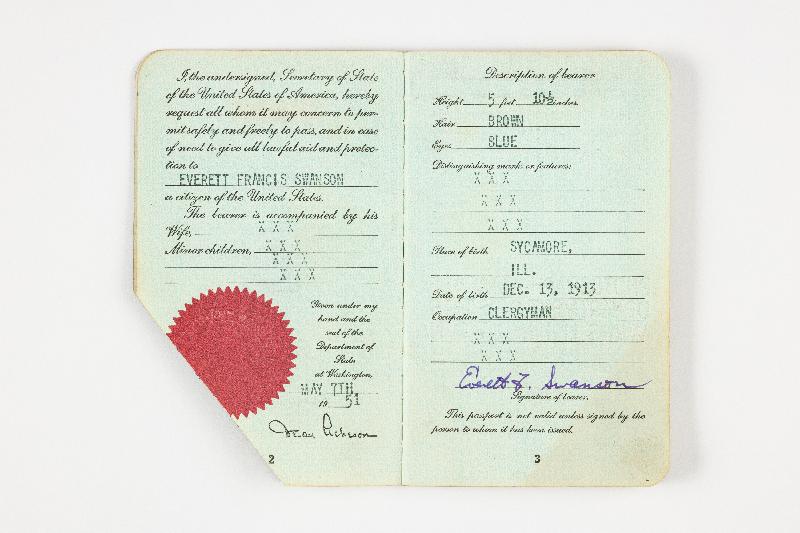 I, the undersigned, Secretary of State
of the United States of America, hereby
request all whom it may concern to per-
mit safely and freely to pass, and in case
of need to give all lawful aid and protec-
tion to
EVERETT FRANCIS SWANSON
a citizen of the United States.
The bearer is accompanied by his
Wife, X X X
Minor children, X X X
X X X
X X X
Given under my
hand and the
seal of the
Department of
State
at Washington,
MAY 7TH,
19 51
Dean Acheson
2
Description of bearer
Height 5 feet 10½ inches
Hair BROWN
Eyes BLUE
Distinguishing marks or features:
X X X
X X X
X X X
Place of birth SYCAMORE,
ILL.
Date of birth DEC. 13, 1913
Occupation CLERGYMAN
X X X
X X X
Everett F. Swanson
Signature of bearer.
This passport is not valid unless signed by the
person to whom it has been issued.
3